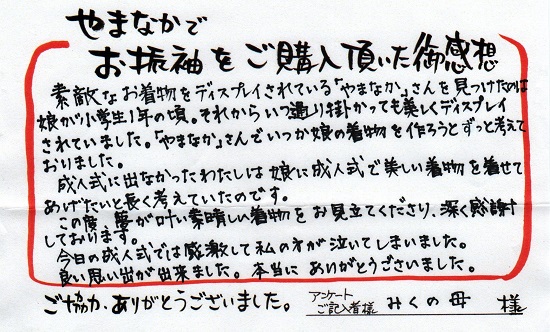 やまなかで
お振袖をご購入頂いた御感想
素敵なお着物をディスプレイされている「やまなか」さんを見つけたのは
娘が小学生1年の頃。それからいつ通り掛かっても美しくディスプレイ
されていました。「やまなか」さんでいつか娘の着物を作ろうとずっと考えて
おりました。
成人式に出なかったわたしは娘に成人式で美しい着物を着せて
あげたいと長く考えていたのです。
この度夢が叶い素晴しい着物をお見立てくださり、深く感謝
しております。
今日の成人式では感激して私の方が泣いてしまいました。
良い思い出が出来ました。本当にありがとうございました。
ご協力、ありがとうございました。
アンケート
ご記入者様 みくの母 様